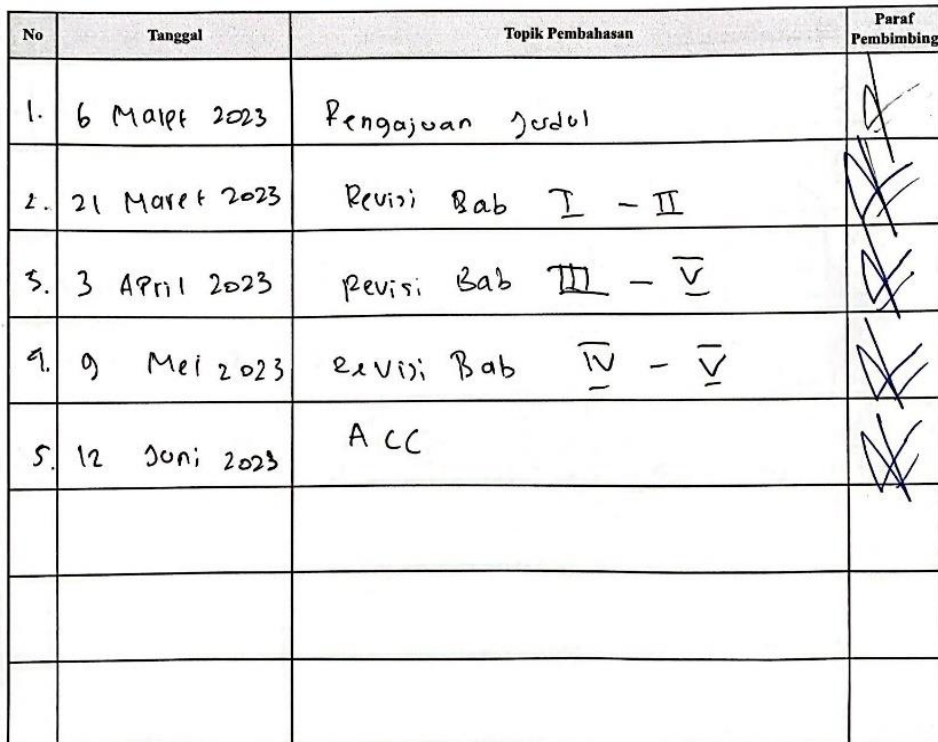 No Tanggal Topik Pembahasan Paraf Pembimbing
1. 6 Maret 2023 Pengajuan Judul
2. 21 Maret 2023 Revisi Bab I - II
3. 3 April 2023 Revisi Bab III - V
4. 9 Mei 2023 Revisi Bab IV - V
5. 12 Juni 2023 ACC